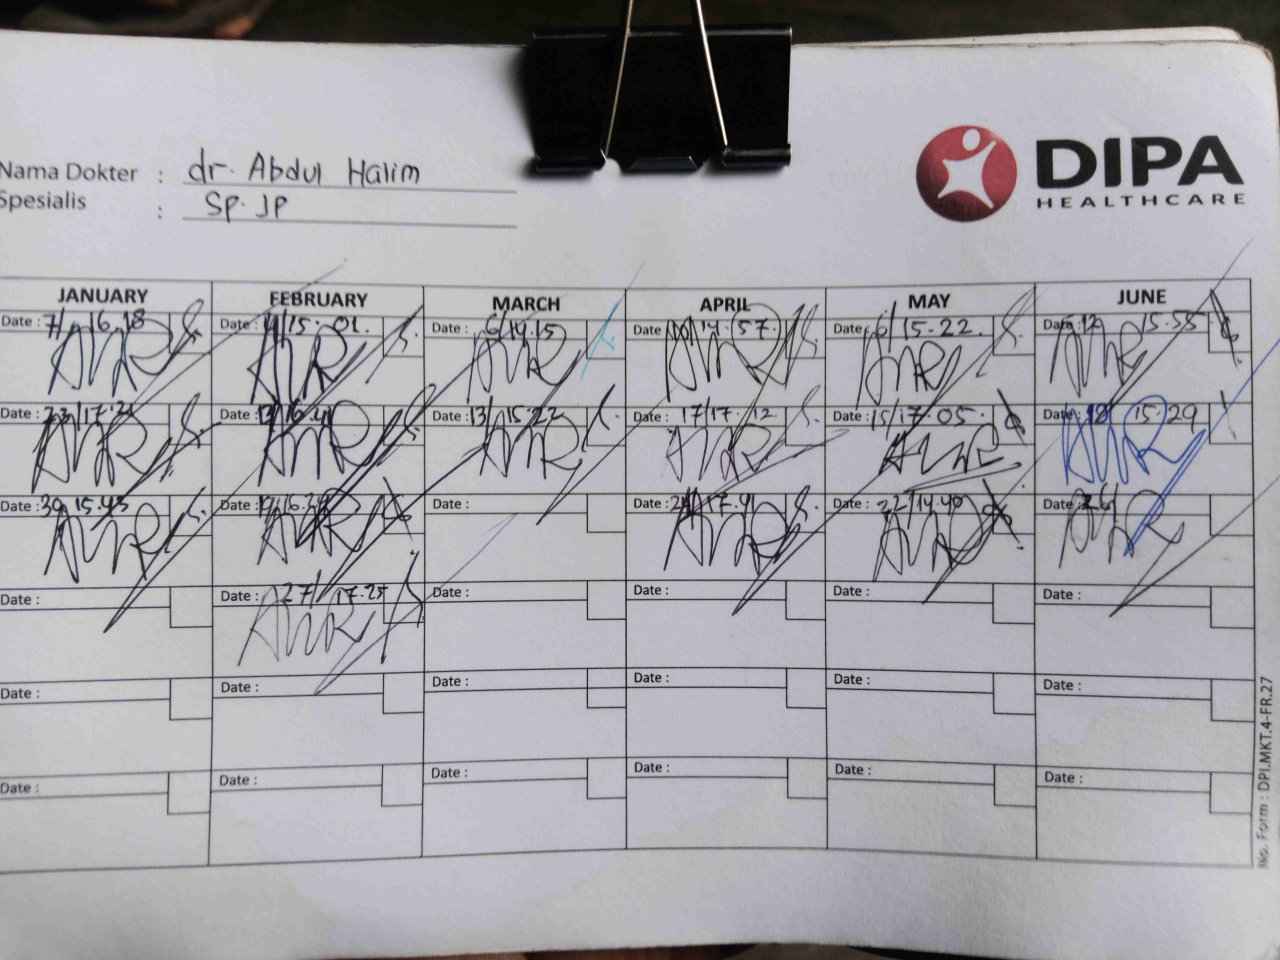 Nama Dokter : dr. Abdul Halim
Spesialis : Sp. JP
DIPA
HEALTHCARE
JANUARY FEBRUARY MARCH APRIL MAY JUNE
Date : 7/ 16.18 Date : 15.01. Date : 6/14.15 Date 14.57. Date : 6/15-22. Date : 15.55
Date : 23/17. Date : 13/16. Date : 13/15.22 Date : 17/17.12 Date : 15/17.05. Date : 18 15.29
Date : 30 15.45 Date : Date : Date : 17. Date : 22/14.40 Date : 26/
Date : Date : 27/ 17.27 Date : Date : Date : Date :
Date : Date : Date : Date : Date : Date :
Date : Date : Date : Date : Date : Date :
No. Form : DPI.MKT.4-FR.27